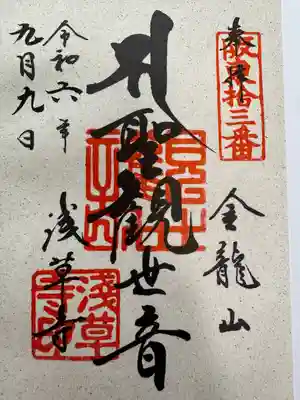 奉拝
坂東拾三番
金龍山
聖観世音
浅草寺
令和六年
九月九日
淺草